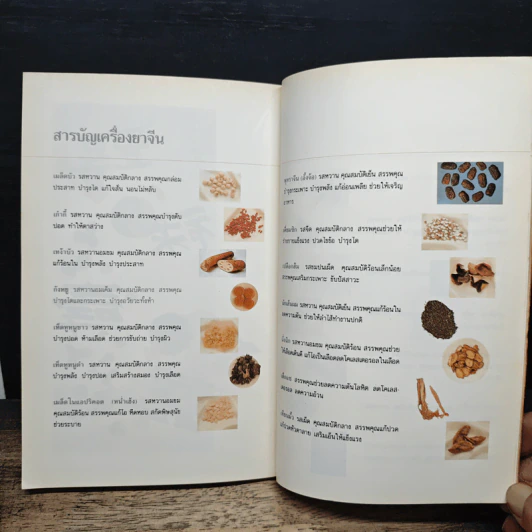 สารบัญเครื่องยาจีน
เมล็ดบัว รสหวาน คุณสมบัติกลาง สรรพคุณกล่อม
ประสาท บำรุงไต แก้ใจสั่น นอนไม่หลับ
เก๋ากี้ รสหวาน คุณสมบัติกลาง สรรพคุณบำรุงตับ
ปอด ทำให้ตาสว่าง
เหง้าบัว รสหวานอมขม คุณสมบัติกลาง สรรพคุณ
แก้ร้อนใน บำรุงพลัง บำรุงประสาท
กังหยู รสหวานอมเค็ม คุณสมบัติกลาง สรรพคุณ
บำรุงไตและกระเพาะ บำรุงอวัยวะทั้งห้า
เห็ดหูหนูขาว รสหวาน คุณสมบัติกลาง สรรพคุณ
บำรุงปอด ห้ามเลือด ช่วยการขับถ่าย บำรุงผิว
เห็ดหูหนูดำ รสหวาน คุณสมบัติกลาง สรรพคุณ
บำรุงพลัง บำรุงปอด เสริมสร้างสมอง บำรุงเลือด
เมล็ดในแอปริคอต (หน่ำเฮ็ง) รสหวานอมขม
คุณสมบัติร้อน สรรพคุณแก้ไอ หืดหอบ สกัดพิษสุนัข
ช่วยระบาย
รสหวาน คุณสมบัติเย็น สรรพคุณ
บำรุงกระเพาะ บำรุงพลัง แก้อ่อนเพลีย ช่วยให้เจริญ
อาหาร
รสจืด คุณสมบัติกลาง สรรพคุณช่วยให้
ร่างกายแข็งแรง ปวดไขข้อ บำรุงไต
รสขมปนเผ็ด คุณสมบัติร้อนเล็กน้อย
สรรพคุณเสริมกระเพาะ ขับปัสสาวะ
รสหวาน คุณสมบัติเย็น สรรพคุณแก้ร้อนใน
ลดความดัน ช่วยให้ลำไส้ทำงานปกติ
รสหวานอมขม คุณสมบัติร้อน สรรพคุณช่วย
แก้ไอเป็นเลือดลดโคเลสเตอรอลในเลือด
สรรพคุณช่วยลดความดันโลหิต ลดโคเลส-
ลดความอ้วน
รสเผ็ด คุณสมบัติกลาง สรรพคุณแก้ปวด
เสริมเอ็นให้แข็งแรง